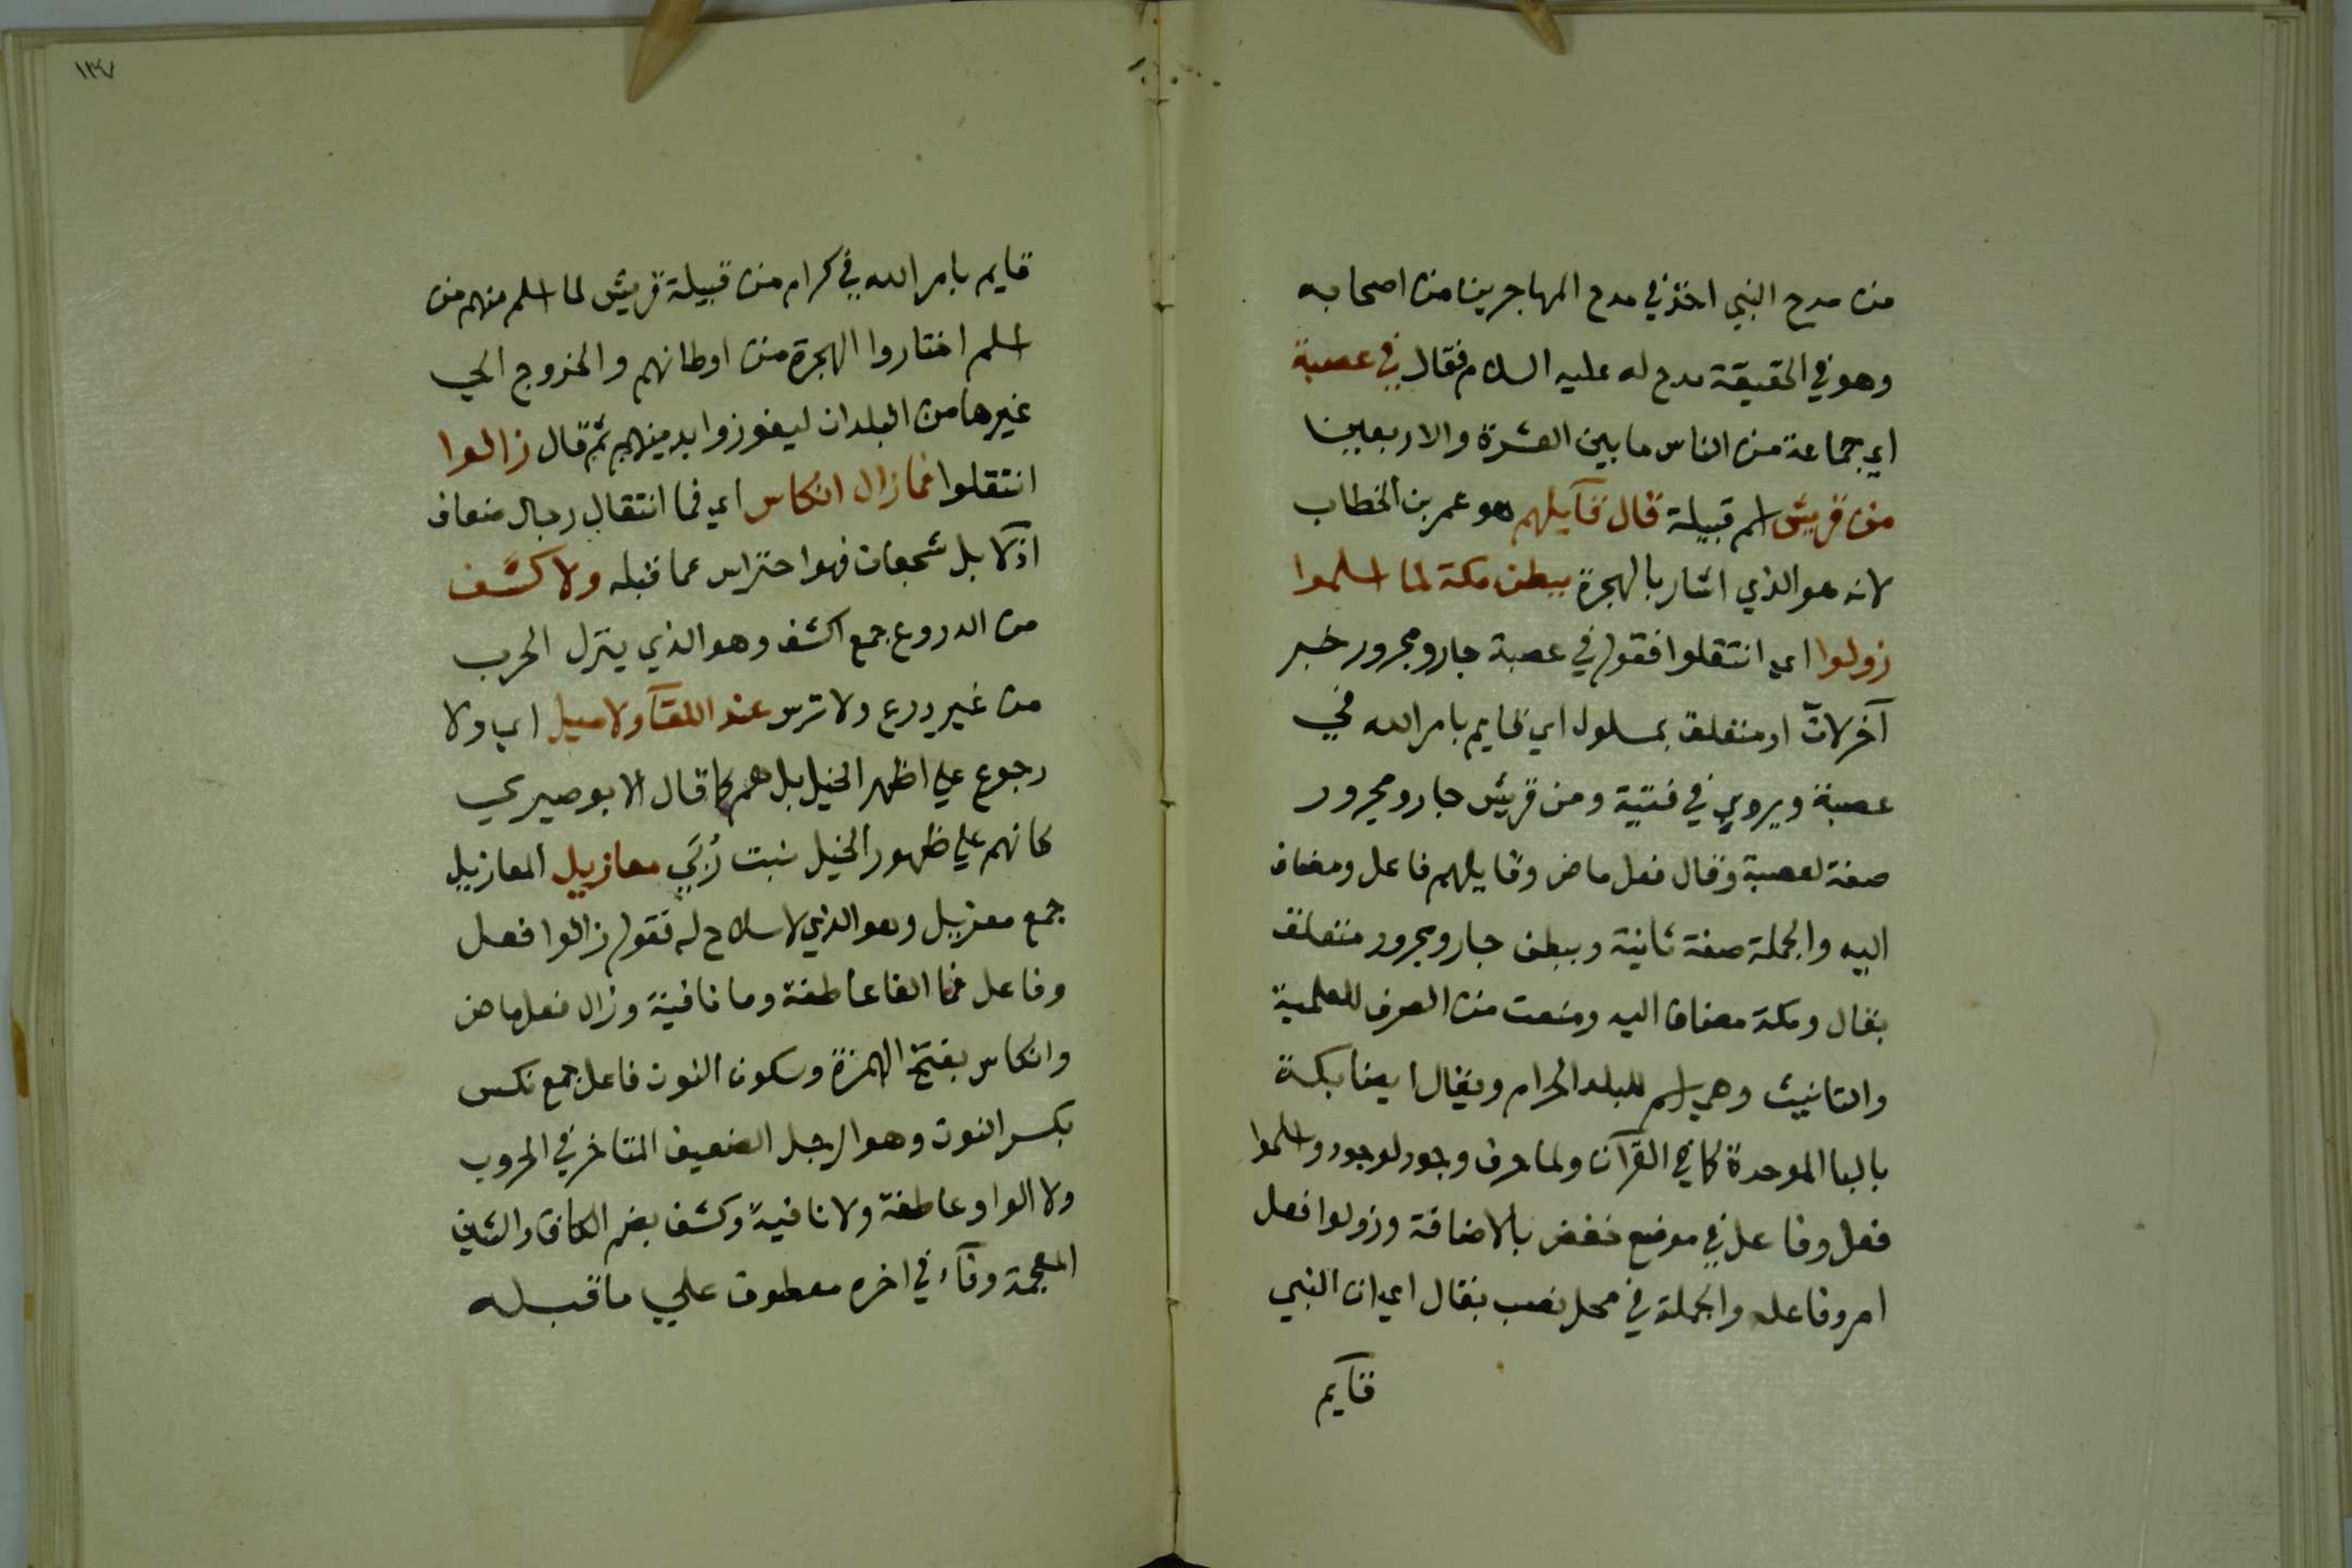 من مدح النبي اخذ في مدح المهاجرين من اصحابه
وهو في الحقيقة مدح له عليه السلام فقال في عصبة
اي جماعة من الناس ما بين العشرة والاربعين
من قريش اسم قبيلة قال قآيلهم هو عمر بن الخطاب
لانه هو الذي اشار بالهجرة ببطن مكة لما اسلموا
زولوا اي انتقلوا فقوله في عصبة جار ومجرور خبر
آخر لانّ او متعلق بمسلول اي قايم بامر الله في
عصبة ويروي في فتية ومن قريش جار ومجرور
صفة لعصبة وقال فعل ماض وقايلهم فاعل ومضاف
اليه والجملة صفة ثانية وببطن جار ومجرور متعلق
بقال ومكة مضاف اليه ومنعت من الصرف للعلمية
والتانيث وهي اسم للبلد الحرام ويقال ايضا بكة
بالبا الموحدة كما في القرآن ولما حرف وجود لوجود واسلموا
فعل وفاعل في موضع خفض بالاضافة وزولوا فعل
امر وفاعله والجملة في محل نصب بقال اي ان النبي
قآيم
١٣٧
قايم بامر الله في كرام من قبيلة قريش لما اسلم منهم من
اسلم اختاروا الهجرة من اوطانهم والخروج الي
غيرها من البلدان ليفوزوا بدينهم ثم قال زالوا
انتقلوا فما زال انكاس اي فما انتقال رجال ضعاف
اذكا بل شجعان فهو احتراس عما قبله ولا كشف
من الدروع جمع اكشف وهو الذي ينزل الحرب
من غير درع ولا ترس عند اللقآ ولا ميل اي ولا
رجوع علي اظهر الخيل بل هم كما قال الابوصيري
كانهم علي ظهور الخيل نبت رُبَي معازيل المعازيل
جمع معزيل وهو الذي لا سلاح له فقوله زالوا فعل
وفاعل فما الفا عاطفة وما نافية وزال فعل ماض
وانكاس بفتح الهمزة وسكون النون فاعل جمع نكس
بكسر النون وهو الرجل الضعيف المتاخر في الحروب
ولا الواو عاطفة ولا نافية وكشف بضم الكاف والشين
المعجمة وفآء في اخره معطوف علي ما قبله